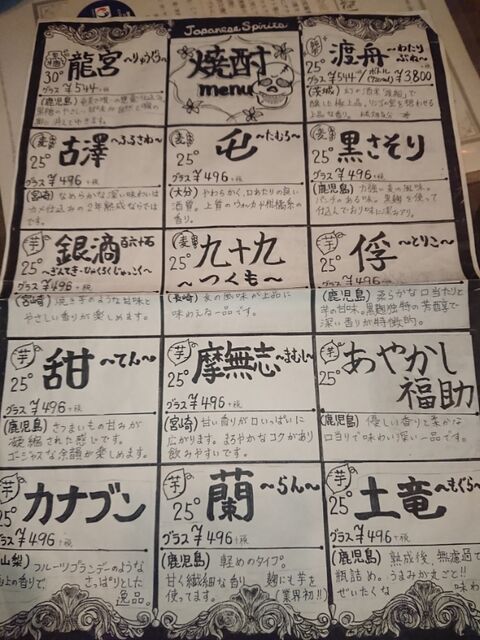 Japanese Spirits
黒糖 龍宮 ～りゅうぐう～
30°
グラス ¥544 +税
(鹿児島)
焼酎
menu
渡舟 ～わたりぶね～
25°
グラス ¥544 +税 ボトル(720ml) ¥3800
(茨城) 幻の酒米"渡船"で
醸した極上品。リンゴの蜜を想わせる
上品な香り。
麦 古澤 ～ふるさわ～
25°
グラス ¥496 +税
(宮崎) なめらかな深い味わいは
カメ仕込みの2年熟成ならでは
です。
麦 屯 ～たむろ～
25°
グラス ¥496 +税
(大分) やわらかく、口あたりの良い
酒質。上質のウォッカや柑橘系の
香り。
麦 黒さそり
25°
グラス ¥496 +税
(鹿児島) 力強い麦の風味。
パンチのある味。黒麹を使って
仕込んでおり味に深みアリ。
芋 銀滴 百六十石
25° ～ぎんてき・ひゃくろくじゅっこく～
グラス ¥496 +税
(宮崎) 焼き芋のような甘味と
やさしい香りが楽しめます。
麦 九十九
25° ～つくも～
グラス ¥496 +税
(長崎) 麦の風味が上品に
味わえる一品です。
芋 俘 ～とりこ～
25°
グラス ¥496 +税
(鹿児島) 柔らかな口当たりと
芋の甘味。黒麹独特の芳醇で
深い香りが特徴的。
芋 甜 ～てん～
25°
グラス ¥496 +税
(鹿児島) さつまいもの甘みが
凝縮された感じです。
ゴージャスな余韻が楽しめます。
芋 摩無志 ～まむし～
25°
グラス ¥496 +税
(宮崎) 甘い香りが口いっぱいに
広がります。まろやかなコクがあり
飲みやすいです。
芋 あやかし
25° 福助
グラス ¥496 +税
(鹿児島) 優しい香りと柔かな
口当りで味わい深い一品です。
芋 カナブン
25°
グラス ¥496 +税
(山梨) フルーツブランデーのような
極上の香りで、さっぱりとした
逸品。
芋 蘭 ～らん～
25°
グラス ¥496 +税
(鹿児島) 軽めのタイプ。
甘く繊細な香り 麹にも芋を
使ってます。 (業界初!!)
芋 土竜 ～もぐら～
25°
グラス ¥496 +税
(鹿児島) 熟成後、無濾過で
瓶詰め。うまみかまごと!!
ぜいたくな 味わ